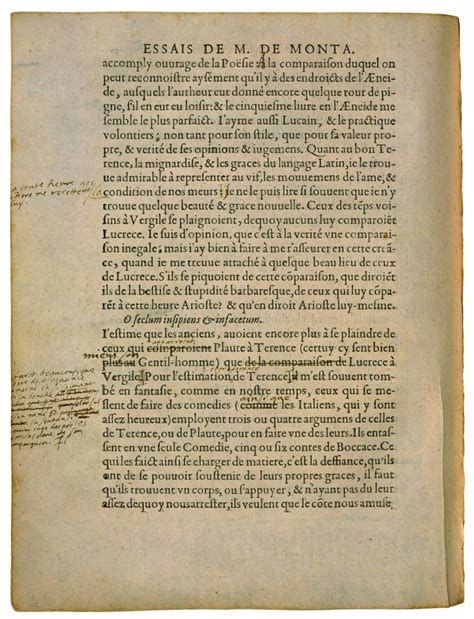 ESSAIS DE M. DE MONTA.
accomply ouurage de la Poësie: A la comparaison duquel on
peut reconnoistre aysément qu'il y à des endroicts de l'Æneï-
de, ausquels l'autheur eut donné encore quelque tour de pi-
gne, s'il en eut eu loisir: & le cinquiesme liure en l'Æneide me
semble le plus parfaict. I'ayme aussi Lucain, & le practique
volontiers; non tant pour son stile, que pour sa valeur pro-
pre, & verité de ses opinions & iugemens. Quant au bon Te-
rence, la mignardise, & les graces du langage Latin, ie le trou-
ue admirable à representer au vif, les mouuemens de l'ame, &
condition de nos meurs: ie ne le puis lire si souuent que ie n'y
trouue quelque beauté & grace nouuelle. Ceux des tẽps voi-
sins à Vergile se plaignoient, dequoy aucuns luy comparoiẽt
Lucrece. Ie suis d'opinion, que c'est à la verité vne comparai-
son inegale; mais i'ay bien à faire à me r'asseurer en cette creã-
ce, quand ie me treuue attaché à quelque beau lieu de ceux
de Lucrece. S'ils se piquoient de cette cõparaison, que diroiẽt
ils de la bestise & stupidité barbaresque, de ceux qui luy cõpa-
rẽt à cette heure Arioste? & qu'en diroit Arioste luy-mesme?
O seclum insipiens & infacetum.
I'estime que les anciens, auoient encore plus à se plaindre de
ceux qui comparoient Plaute à Terence (cettuy cy sent bien
mieus son
plus au Gentil-homme) que de la comparaison de Lucrece à
Vergile. Pour l'estimation de Terence il m'est souuent tom-
bé en fantasie, comme en nostre temps, ceux qui se mes-
lent de faire des comedies (comme les Italiens, qui y sont
assez heureux) employent trois ou quatre argumens de celles
de Terence, ou de Plaute, pour en faire vne des leurs. Ils entas-
sent en vne seule Comedie, cinq ou six contes de Boccace. Ce
qui les faict ainsi se charger de matiere, c'est la deffiance, qu'ils
ont de se pouuoir soustenir de leurs propres graces, il faut
qu'ils trouuent vn corps, ou s'appuyer, & n'ayant pas du leur
assez dequoy nous arrester, ils veulent que le cõte nous amuse.